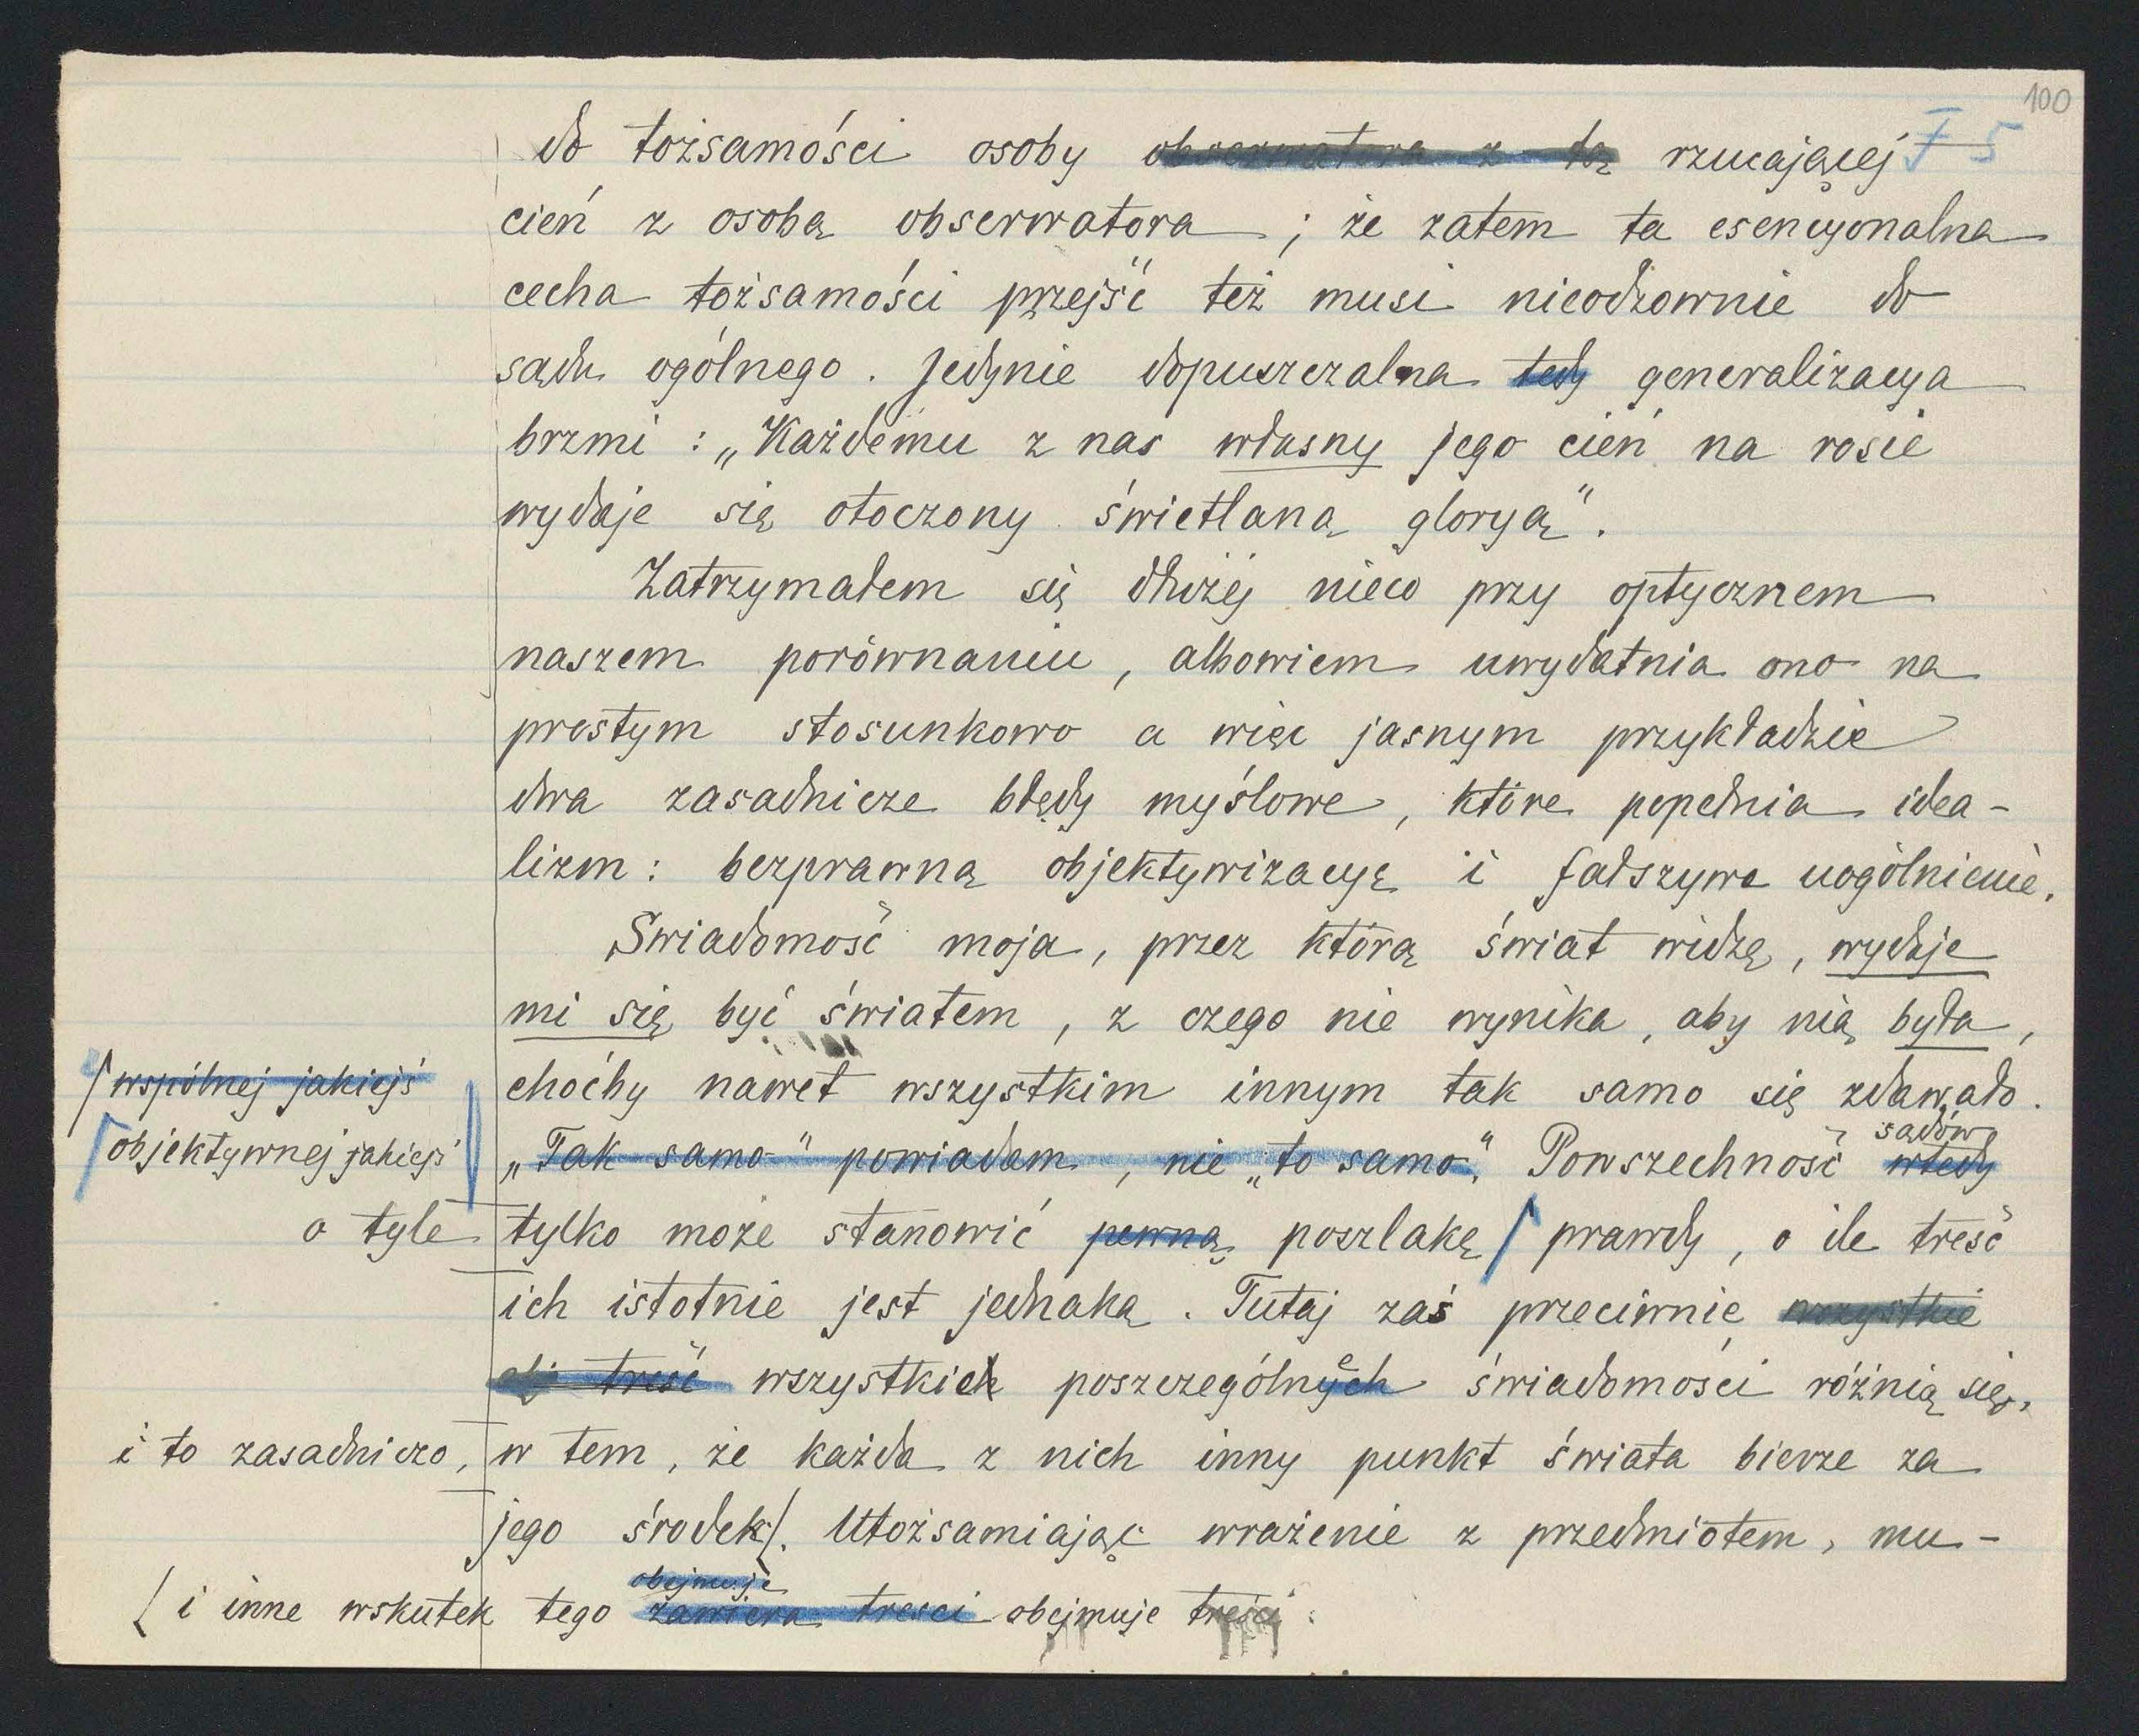 100
F 5
do tożsamości osoby obserwatora z tą rzucającej
cień z osobą obserwatora ; że zatem ta esencyonalna
cecha tożsamości przejść też musi nieodzownie do
sądu ogólnego. Jedynie dopuszczalna tedy generalizacya
brzmi : „Każdemu z nas własny jego cień na rosie
wydaje się otoczony świetlaną gloryą".
Zatrzymałem się dłużej nieco przy optycznem
naszem porównaniu, albowiem uwydatnia ono na
prostym stosunkowo a więc jasnym przykładzie
dwa zasadnicze błędy myślowe, które popełnia idea-
lizm: bezprawną objektywizacyę i fałszywe uogólnienie.
Świadomość moja, przez którą świat widzę, wydaje
mi się być światem, z czego nie wynika, aby nią była,
/ wspólnej jakiejś choćby nawet wszystkim innym tak samo się zdawało.
sądów
/ objektywnej jakiejś „Tak samo" powiadam, nie „to samo". Powszechność wtedy
o tyle tylko może stanowić pewną poszlakę / prawdy, o ile treść
ich istotnie jest jednaką. Tutaj zaś przeciwnie wszystkie
treść wszystkich poszczególnych świadomości różnią się,
i to zasadniczo, w tem, że każda z nich inny punkt świata bierze za
jego środek/. Utożsamiając wrażenie z przedmiotem, mu-
obejmuje
/ i inne wskutek tego zawiera treści obejmuje treści.